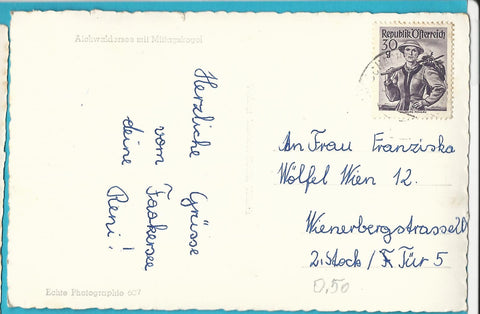 Aichwaldersee mit Mittagskogel
Republik Österreich
30
g
Herzliche Grüsse
vom Faakersee
deine
Reni!
An Frau Franziska
Wölfel Wien 12.
Wienerbergstrasse
2. Stock / Tür 5
0,50
Echte Photographie 607